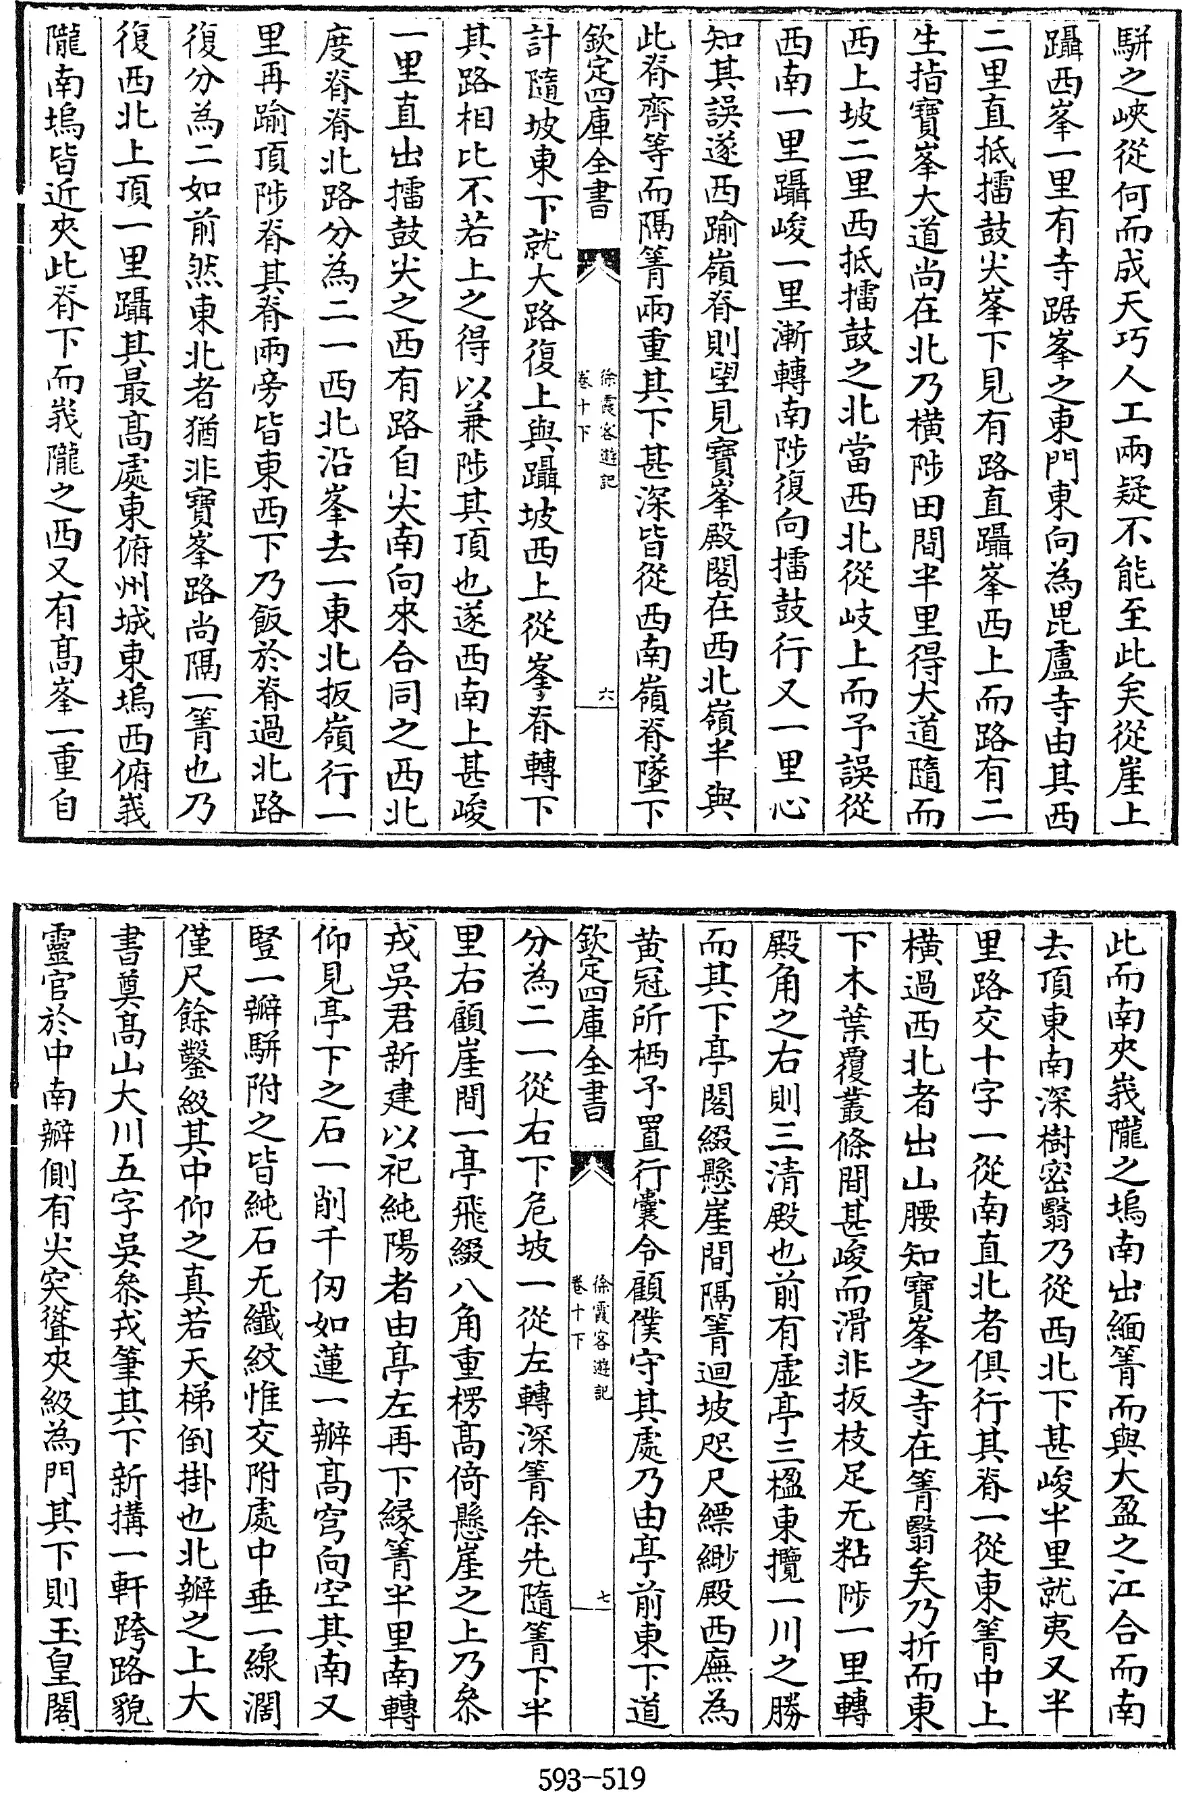 駢之峽從何而成天巧人工兩疑不能至此矣從崖上
躡西峯一里有寺踞峯之東門東向為毘盧寺由其西
二里直抵擂鼓尖峯下見有路直躡峯西上而路有二
生指寶峯大道尚在北乃橫陟田間半里得大道隨而
西上坡二里西抵擂鼓之北當西北從岐上而予誤從
西南一里躡峻一里漸轉南陟復向擂鼓行又一里心
知其誤遂西踰嶺脊則望見寶峯殿閣在西北嶺半與
此脊齊等而隔箐兩重其下甚深皆從西南嶺脊墜下
欽定四庫全書
徐霞客遊記
卷十下
六
計隨坡東下就大路復上與躡坡西上從峯脊轉下
其路相比不若上之得以兼陟其頂也遂西南上甚峻
一里直出擂鼓尖之西有路自尖南向來合同之西北
度脊脊北路分為二一西北沿峯去一東北扳嶺行一
里再踰頂陟脊其脊兩旁皆東西下乃飯於脊過北路
復分為二如前然東北者猶非寶峯路尚隔一箐也乃
復西北上頂一里躡其最高處東俯州城東塢西俯峩
隴南塢皆近夾此脊下而峩隴之西又有高峯一重自
此而南夾峩隴之塢南出緬箐而與大盈之江合而南
去頂東南深樹密翳乃從西北下甚峻半里就夷又半
里路交十字一從南直北者俱行其脊一從東箐中上
橫過西北者出山腰知寶峯之寺在箐翳矣乃折而東
下木葉覆叢條間甚峻而滑非扳枝足无粘陟一里轉
殿角之右則三清殿也前有虛亭三楹東攬一川之勝
而其下亭閣綴懸崖間隔箐迴坡咫尺縹緲殿西廡為
黃冠所栖予置行囊令顧僕守其處乃由亭前東下道
欽定四庫全書
徐霞客遊記
卷十下
七
分為二一從右下危坡一從左轉深箐余先隨箐下半
里右顧崖間一亭飛綴八角重楞高倚懸崖之上乃叅
戎吳君新建以祀純陽者由亭左再下緣箐半里南轉
仰見亭下之石一削千仞如蓮一瓣高穹向空其南又
豎一瓣駢附之皆純石无纖紋惟交附處中垂一線濶
僅尺餘鑿級其中仰之真若天梯倒掛也北瓣之上大
書奠高山大川五字吳叅戎筆其下新搆一軒跨路貌
靈官於中南瓣側有尖突聳夾級為門其下則玉皇閣
593-519